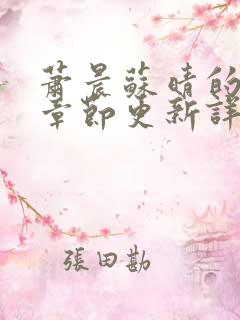 蕭晨蘇晴的
章節更新詳
張田勘